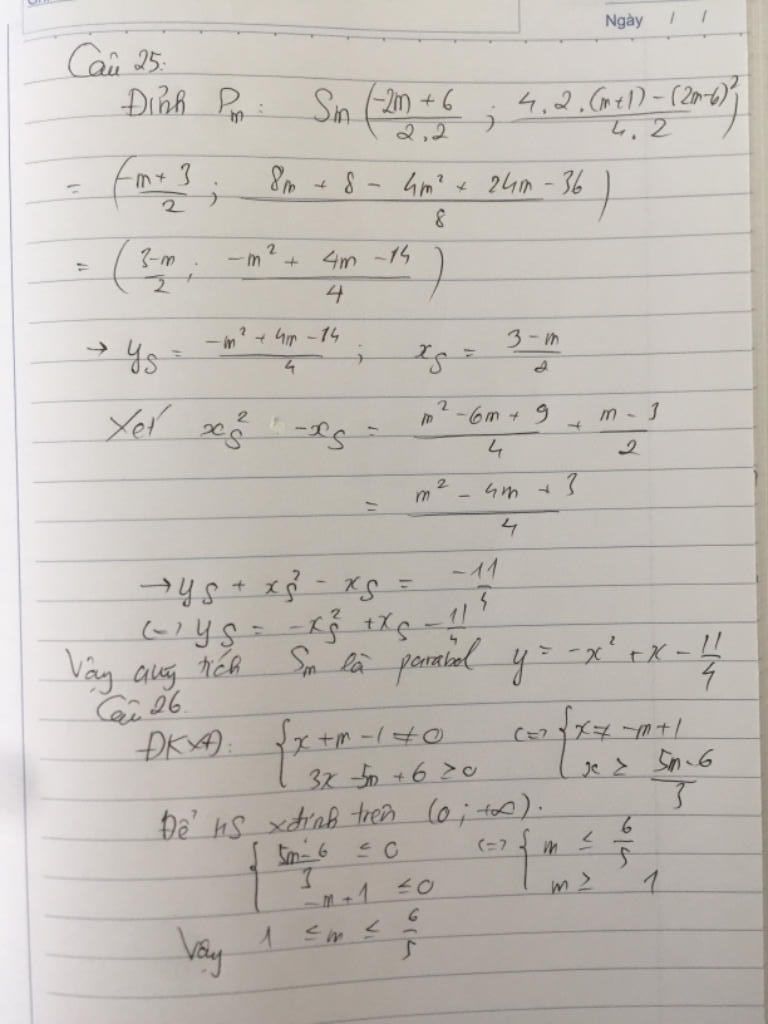 Ngày / /
Câu 25:
Đỉnh Pm: Sm (\frac{-2m+6}{2.2} ; \frac{4.2.(m+1)-(2m-6)^2}{4.2})
= (\frac{-m+3}{2} ; \frac{8m+8-4m^2+24m-36}{8})
= (\frac{3-m}{2} ; \frac{-m^2+4m-14}{4})
→ y_S = \frac{-m^2+4m-14}{4} ; x_S = \frac{3-m}{2}
Xét x_S^2 - x_S = \frac{m^2-6m+9}{4} + \frac{m-3}{2}
= \frac{m^2-4m+3}{4}
→ y_S + x_S^2 - x_S = \frac{-11}{4}
(=) y_S = -x_S^2 + x_S - \frac{11}{4}
Vậy quỹ tích Sm là parabol y = -x^2 + x - \frac{11}{4}
Câu 26.
ĐKXĐ: { x+m-1 ≠ 0 (=> { x ≠ -m+1
3x-5m+6 ≥ 0 x ≥ \frac{5m-6}{3}
Để HS xđịnh trên (0; +∞).
{ \frac{5m-6}{3} ≤ 0 (=> { m ≤ \frac{6}{5}
-m+1 ≤ 0 m ≥ 1
Vậy 1 ≤ m ≤ \frac{6}{5}